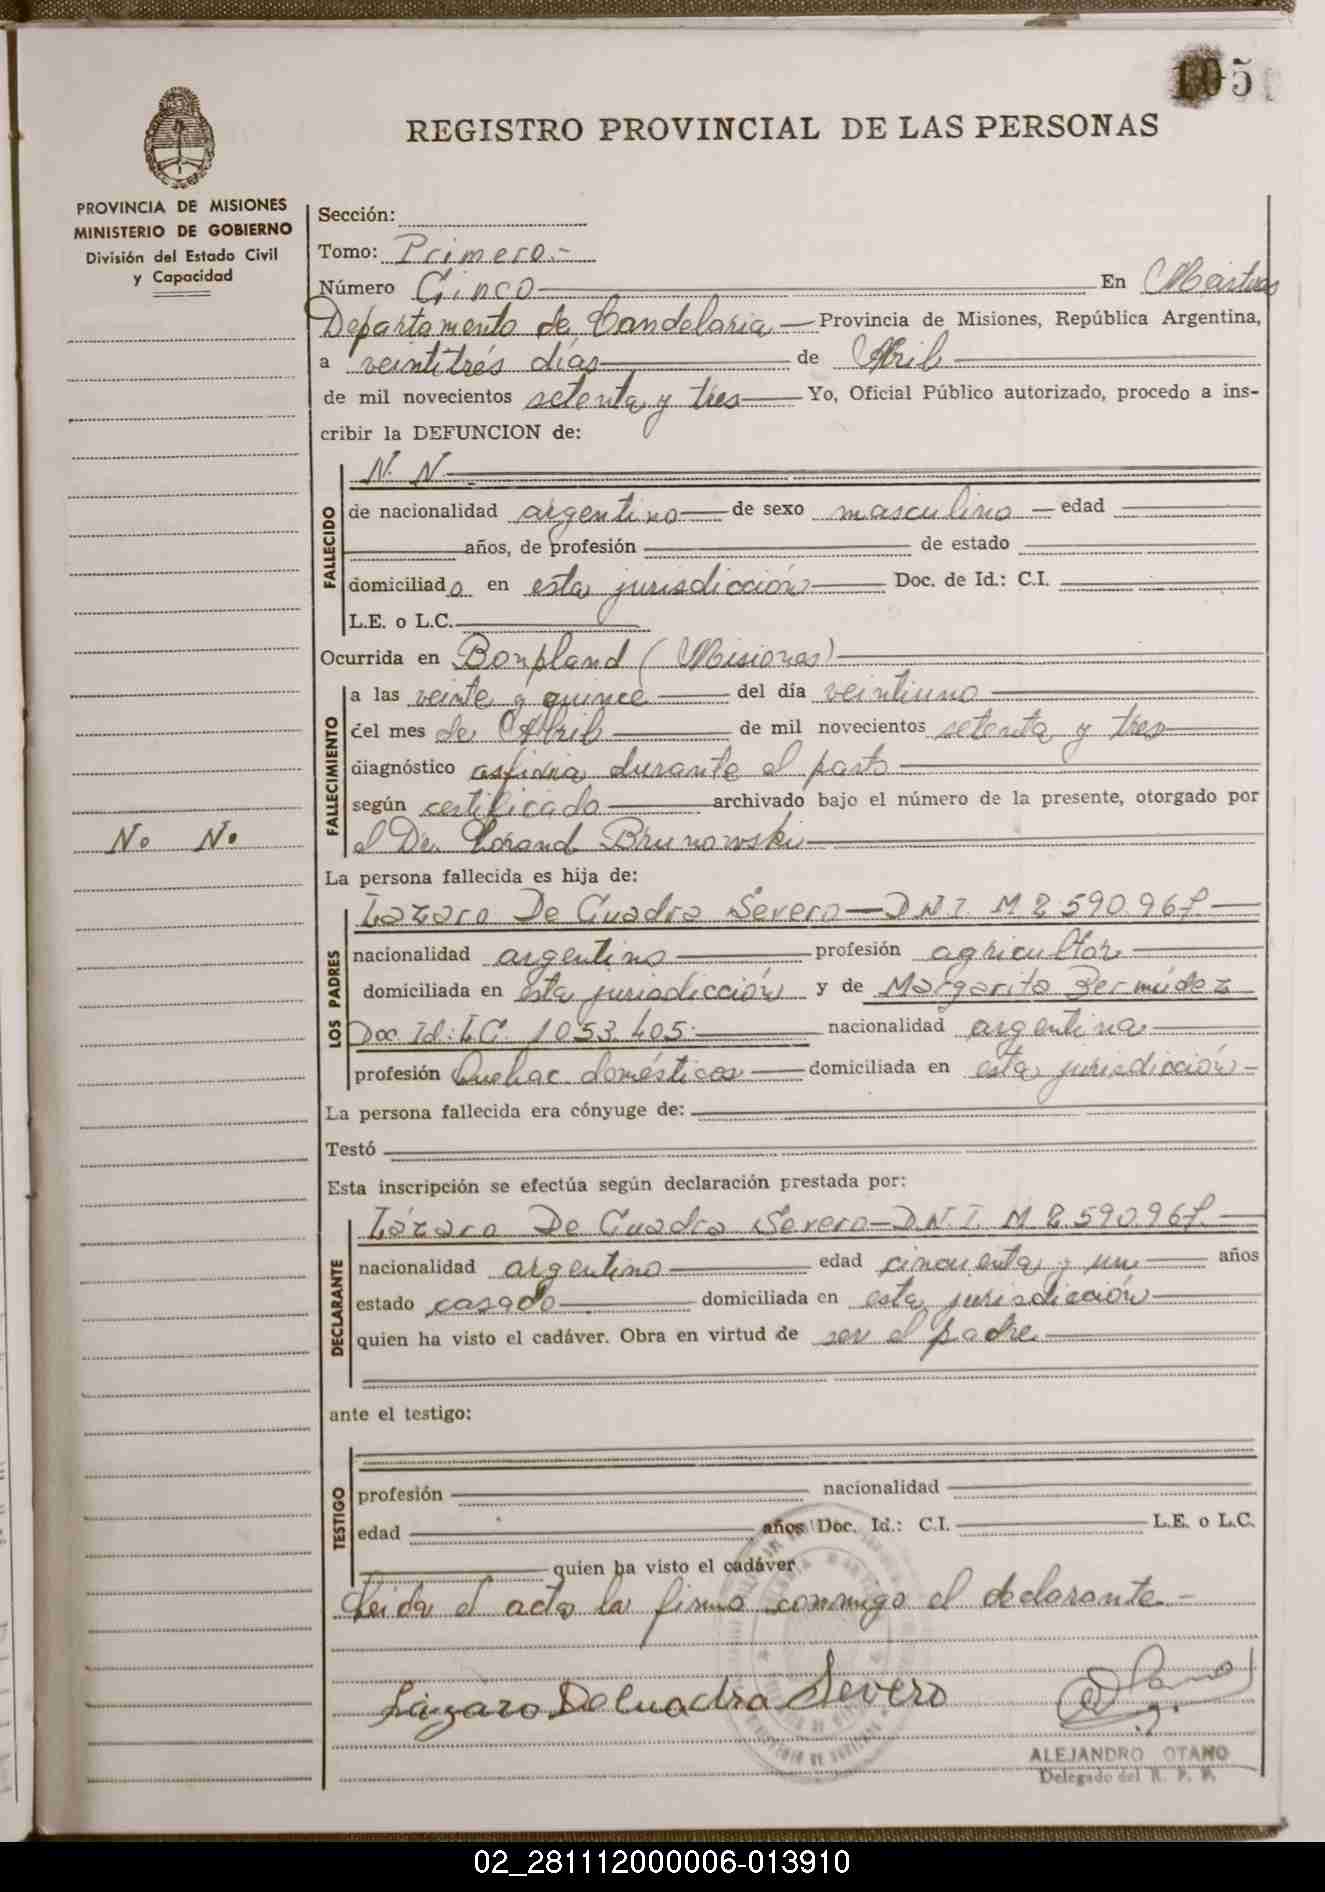 105
REGISTRO PROVINCIAL DE LAS PERSONAS
PROVINCIA DE MISIONES
MINISTERIO DE GOBIERNO
División del Estado Civil
y Capacidad
Sección:
Tomo: Primero.-
Número Cinco En Mártires
Departamento de Candelaria Provincia de Misiones, República Argentina,
a veintitrés días de Abril
de mil novecientos setenta y tres Yo, Oficial Público autorizado, procedo a ins-
cribir la DEFUNCION de:
N. N.
FALLECIDO
de nacionalidad argentino de sexo masculino edad
años, de profesión de estado
domiciliado en esta jurisdicción Doc. de Id.: C.I.
L.E. o L.C.
Ocurrida en Bonpland (Misiones)
FALLECIMIENTO
a las veinte y quince del día veintiuno
del mes de Abril de mil novecientos setenta y tres
diagnóstico asfixia durante el parto
según certificado archivado bajo el número de la presente, otorgado por
el Dr. Lorand Brunowski
No No
La persona fallecida es hija de:
LOS PADRES
Lazaro De Cuadra Severo—D.N.I. M 8.590.967.
nacionalidad argentino profesión agricultor
domiciliada en esta jurisdicción y de Margarita Bermúdez
Doc. Id: L.C. 1.053.405 nacionalidad argentina
profesión Quehac. domésticos domiciliada en esta jurisdicción
La persona fallecida era cónyuge de:
Testó
Esta inscripción se efectúa según declaración prestada por:
DECLARANTE
Lázaro De Cuadra Severo—D.N.I. M 8.590.967.
nacionalidad argentino edad cincuenta y un años
estado casado domiciliada en esta jurisdicción
quien ha visto el cadáver. Obra en virtud de ser el padre
ante el testigo:
TESTIGO
profesión nacionalidad
edad años Doc. Id.: C.I. L.E. o L.C.
quien ha visto el cadáver
Leida el acta la firma conmigo el declarante.-
Lázaro De Cuadra Severo
ALEJANDRO OTAÑO
Delegado del R. P. P.
02_281112000006-013910